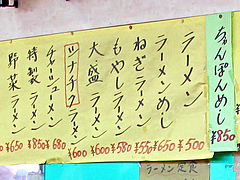 ちゃんぽんめし
¥850
ラーメン
¥500
ラーメンめし
¥650
ねぎラーメン
¥550
もやしラーメン
¥580
大盛ラーメン
¥600
ツナチゲラーメン
¥600
チャーシューメン
¥680
特製ラーメン
¥850
野菜ラーメン
¥650
ラーメン定食